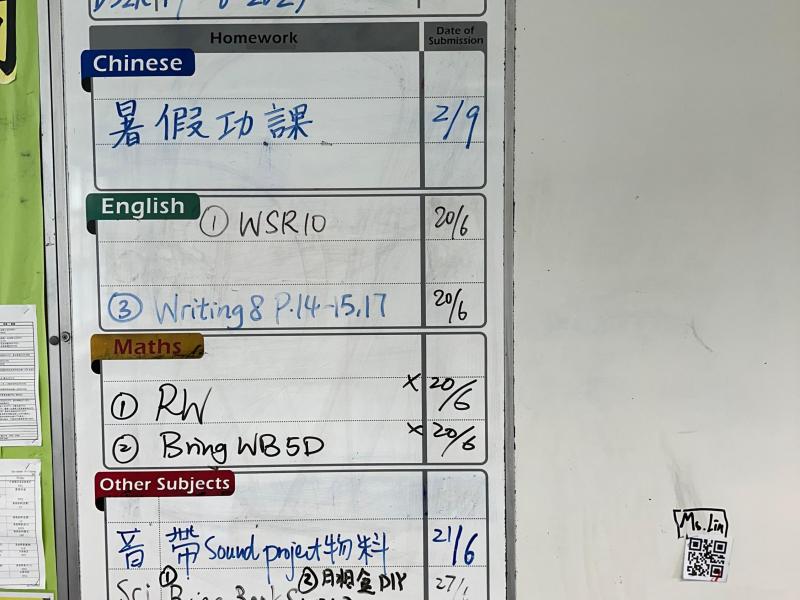 Homework Date of Submission
Chinese
暑假功課 2/9
English
① WSR10 20/6
③ Writing8 P.14-15,17 20/6
Maths
① RW × 20/6
② Bring WB5D × 20/6
Other Subjects
音 帶Sound project物料 21/6
Sci ① Bring Book ② DIY 27/
Ms. Lin